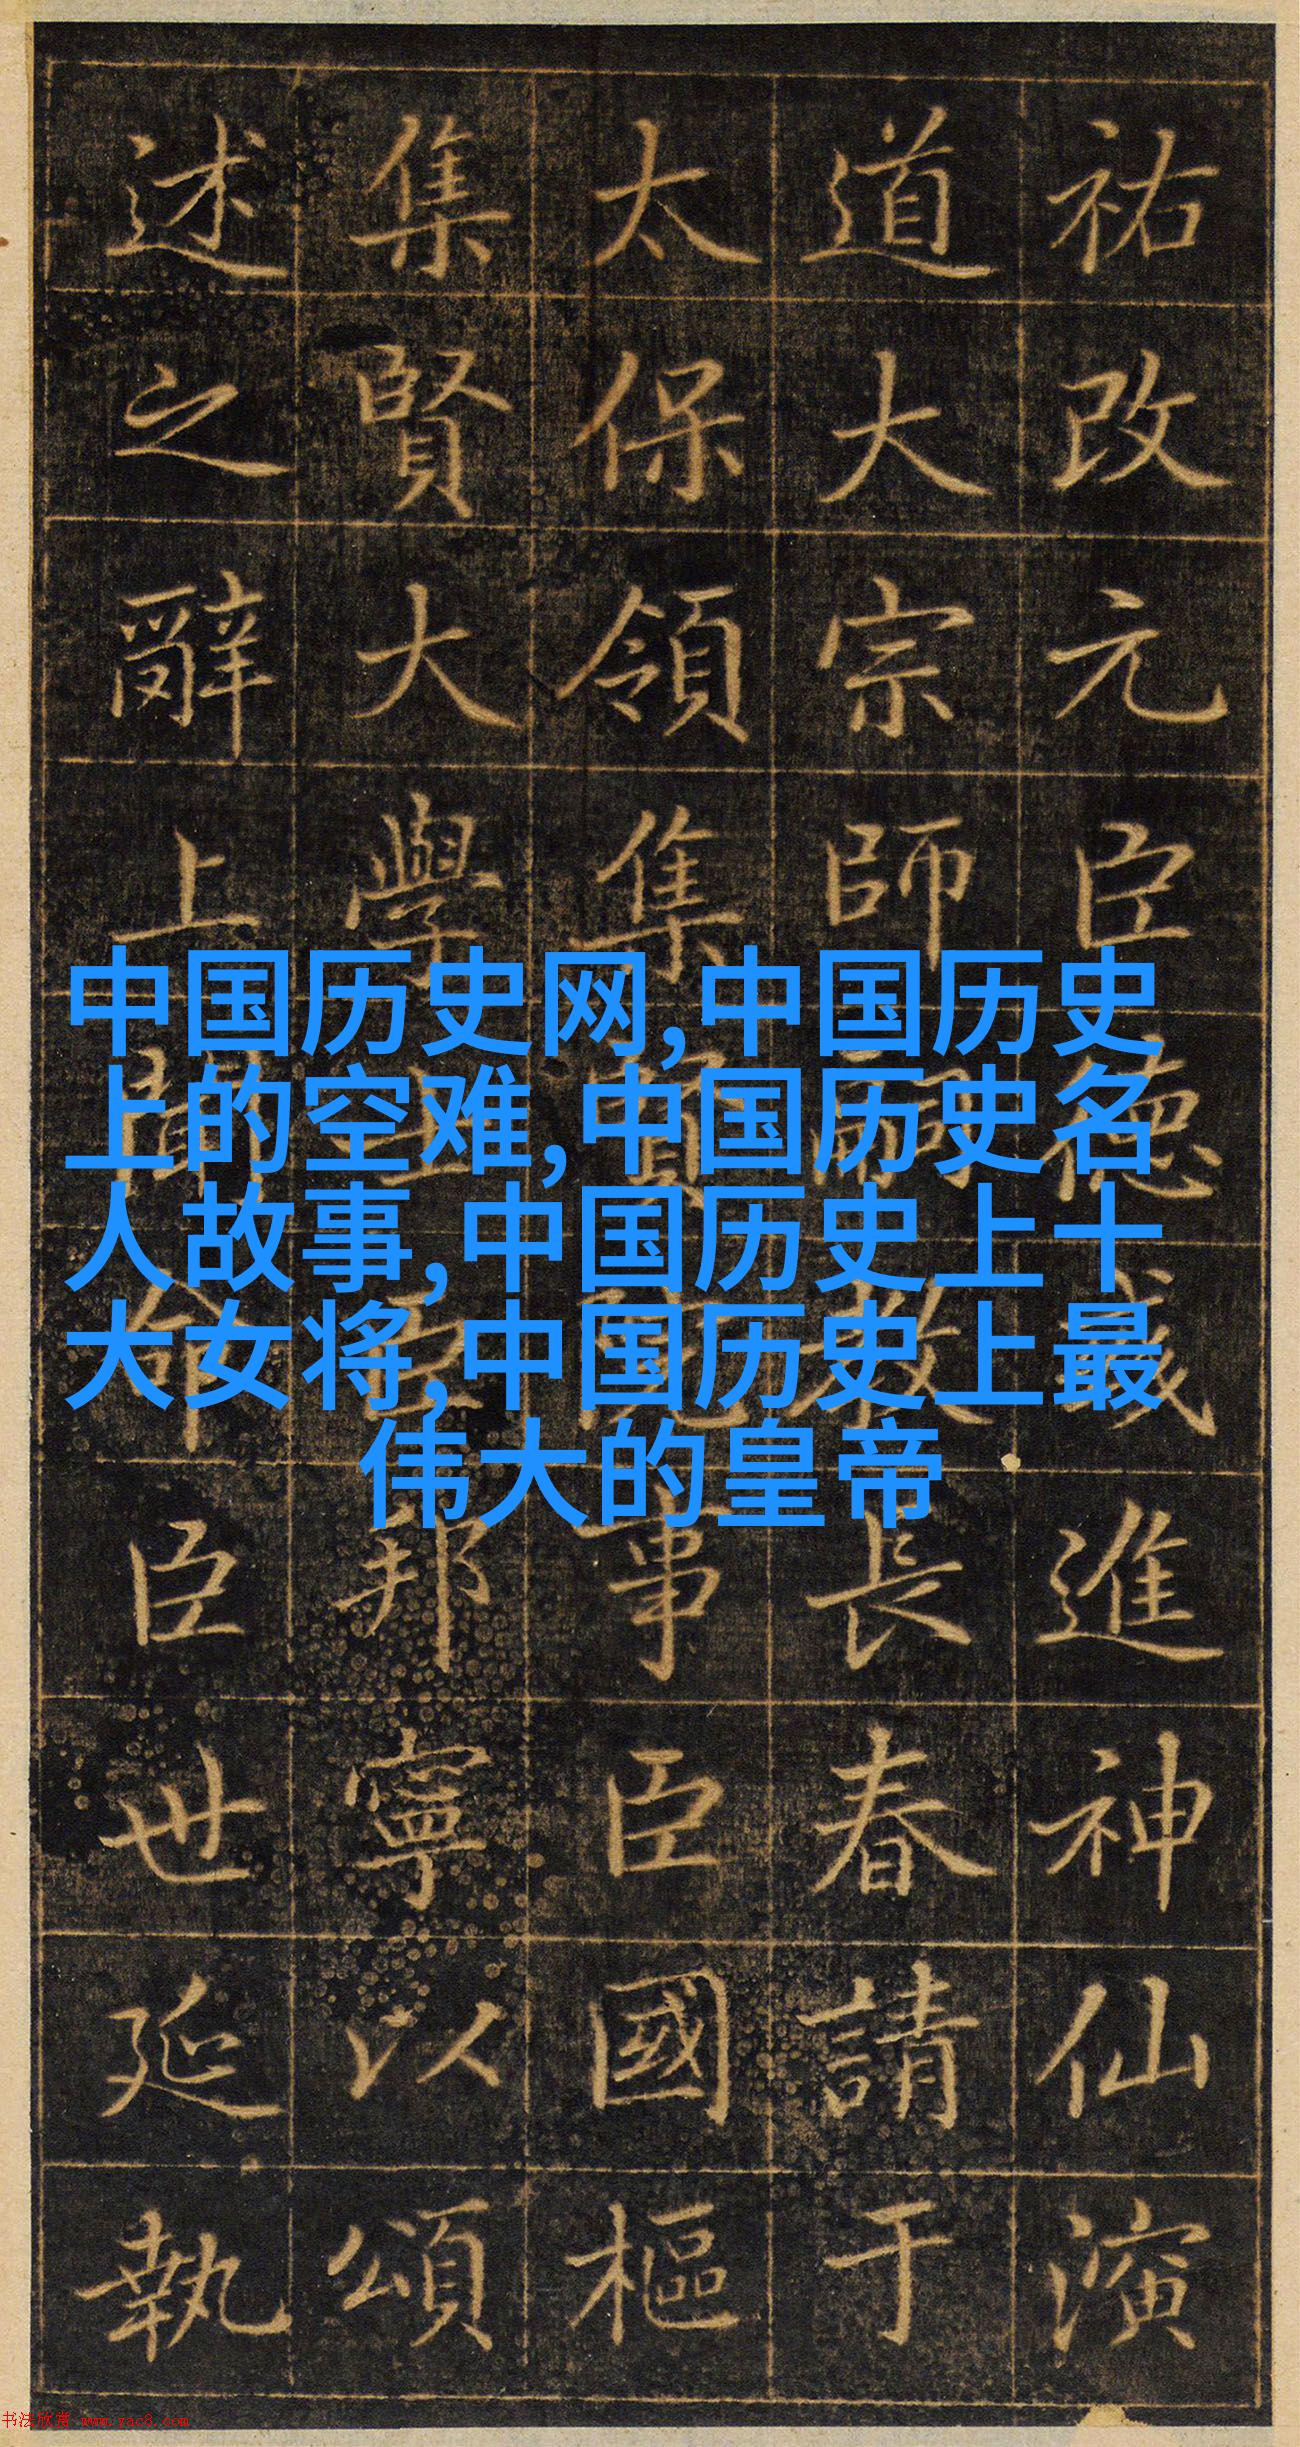 祐改元臣德義進神仙演
道大宗師嗣教長春請于
太保領集賢院事臣國樞
集賢大學士臣邦寧以頌
述之辭上聞命臣世延執
中国历史网,中国历史
上的空难,中国历史名
人故事,中国历史上十
大女将,中国历史上最
伟大的皇帝
书法欣赏 www.yac8.com